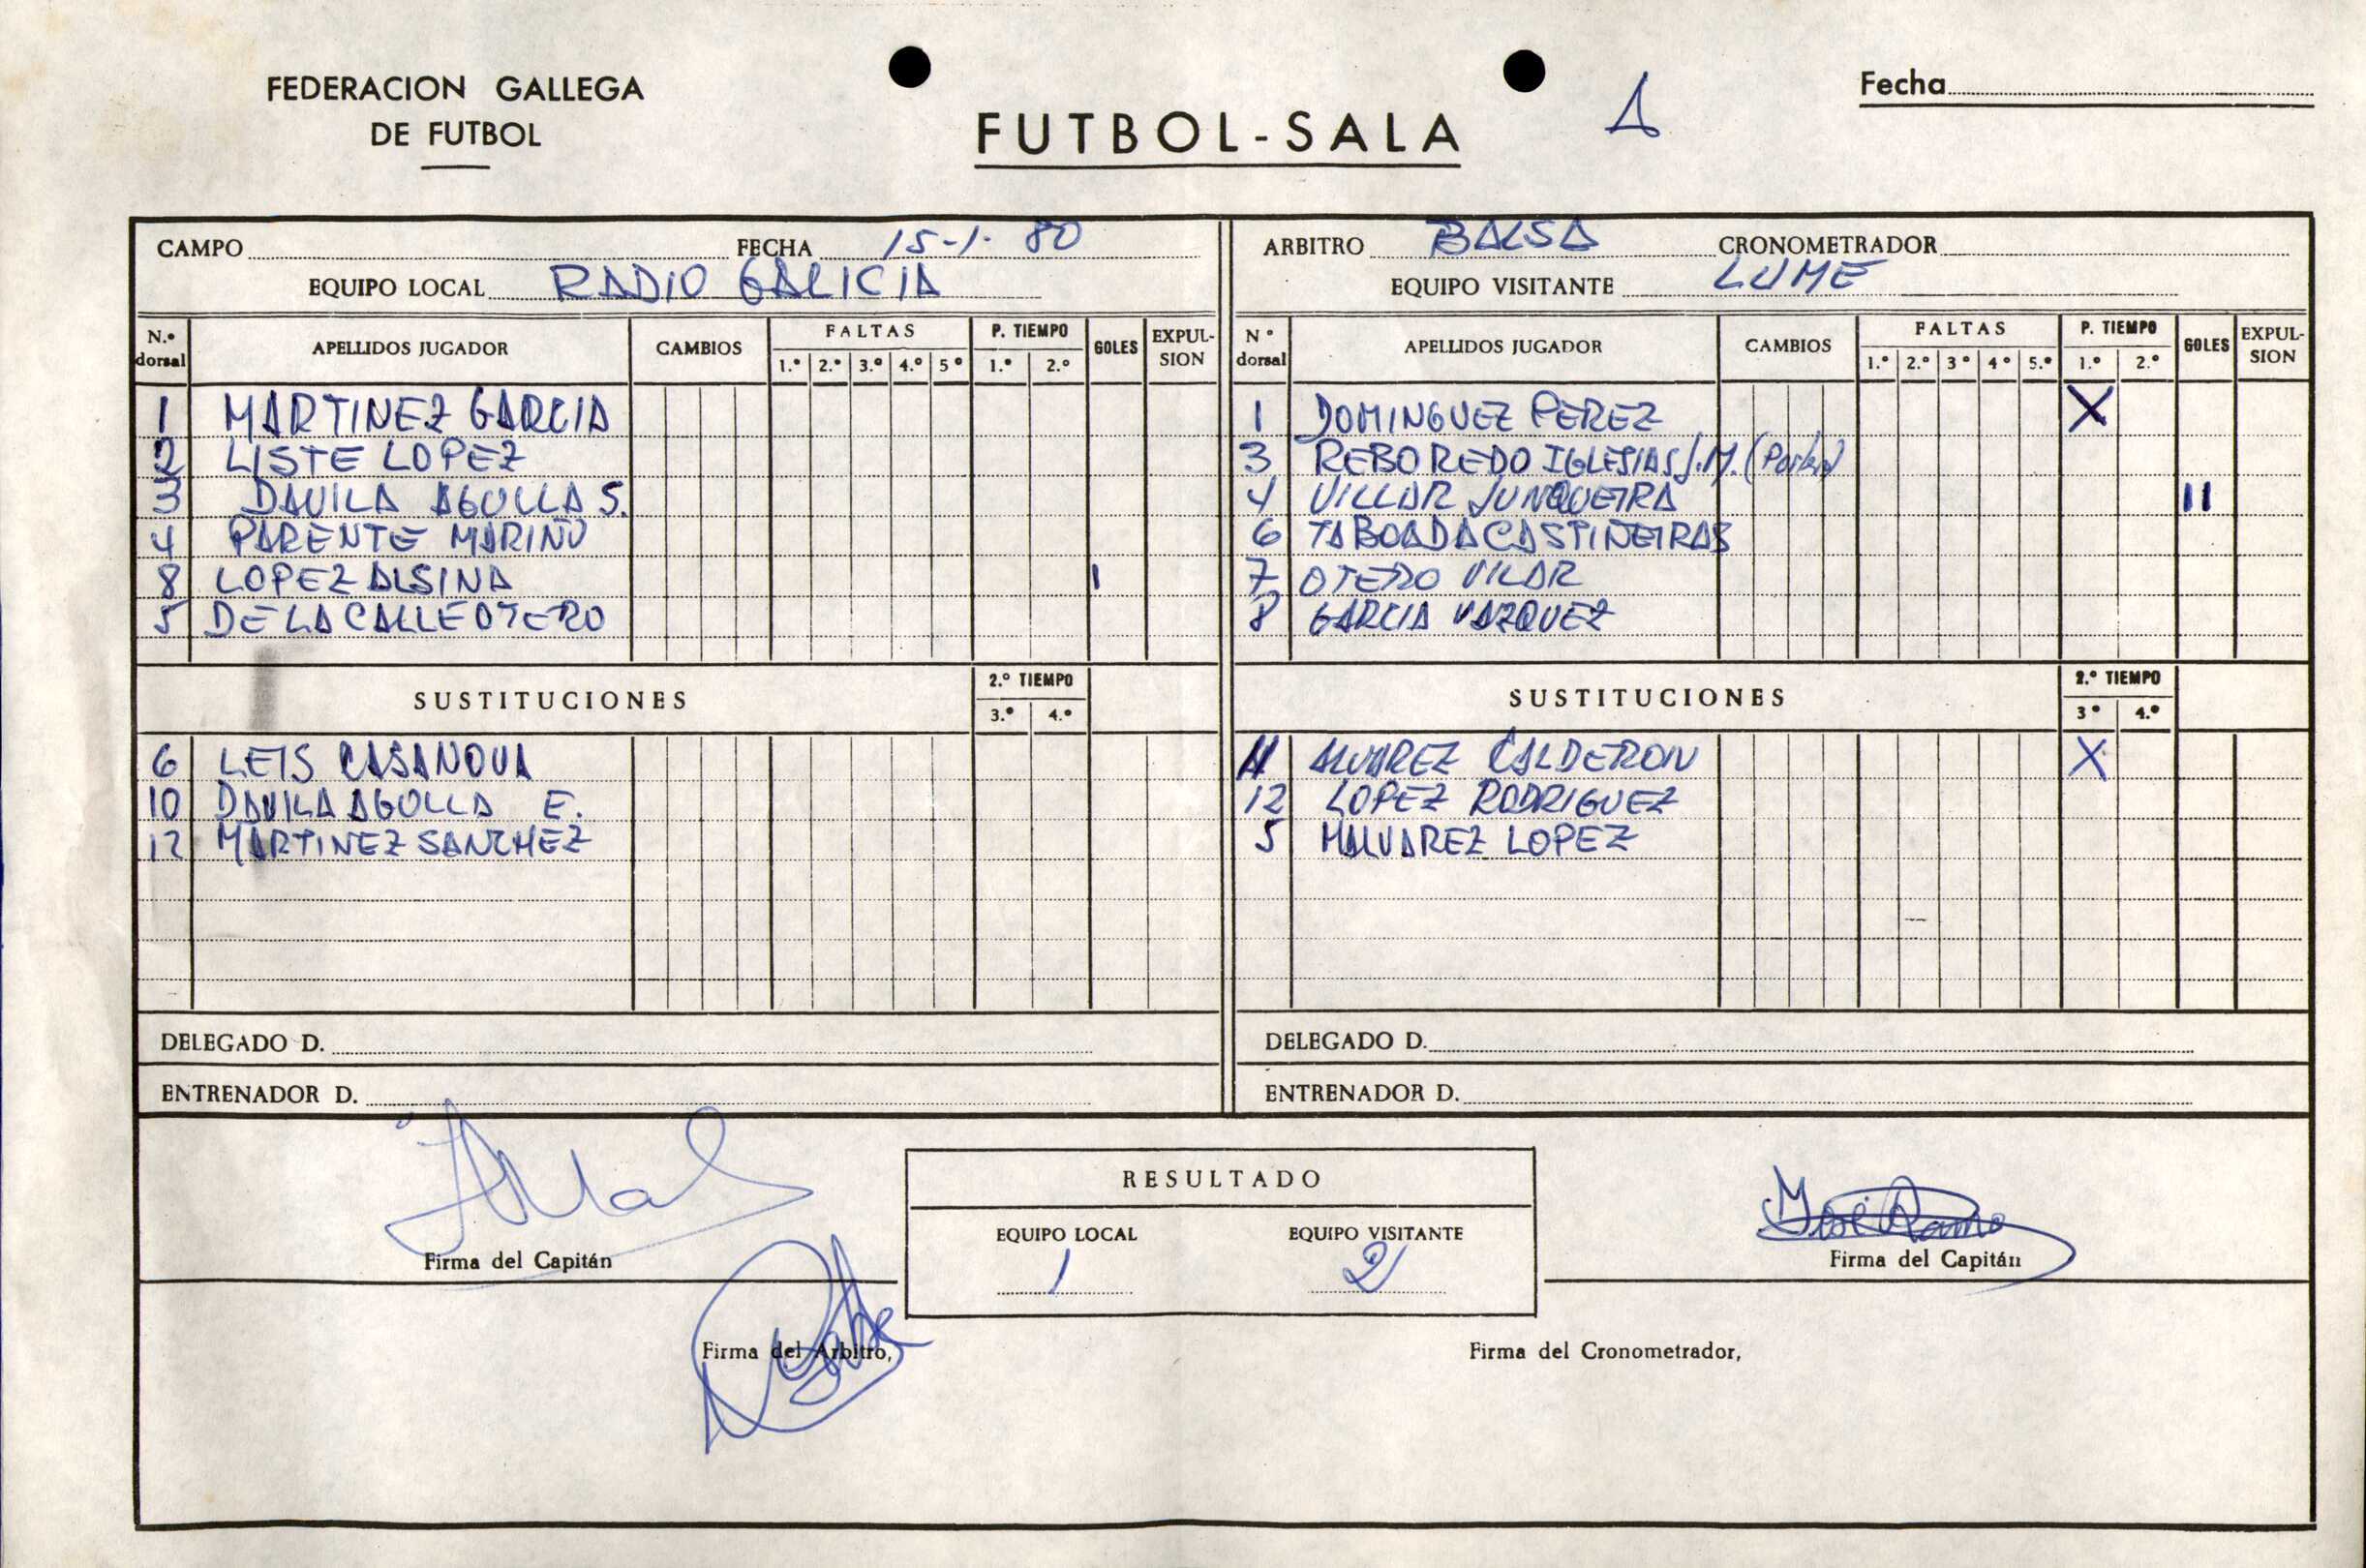 FEDERACION GALLEGA
DE FUTBOL
FUTBOL-SALA
1
Fecha
CAMPO FECHA 15-1-80
EQUIPO LOCAL RADIO GALICIA
N.º dorsal APELLIDOS JUGADOR CAMBIOS FALTAS 1.º 2.º 3.º 4.º 5º P. TIEMPO 1.º 2.º GOLES EXPUL-SION
1 MARTINEZ GARCIA
2 LISTE LOPEZ
3 DAVILA AGULLA S.
4 PARENTE MARIÑO
8 LOPEZ ALSINA I
5 DE LA CALLE OTERO
SUSTITUCIONES 2.º TIEMPO 3.º 4.º
6 LEIS CASANOVA
10 DAVILA AGOLLA E.
12 MARTINEZ SANCHEZ
DELEGADO D.
ENTRENADOR D.
ARBITRO BALSA CRONOMETRADOR
EQUIPO VISITANTE LUME
N º dorsal APELLIDOS JUGADOR CAMBIOS FALTAS 1.º 2.º 3º 4º 5.º P. TIEMPO 1.º 2.º GOLES EXPUL-SION
1 DOMINGUEZ PEREZ X
3 REBOREDO IGLESIAS J.M. (Portero)
4 VILLAR JUNQUEIRA II
6 TABOADA CASTIÑEIRAS
7 OTERO VILAR
8 GARCIA VAZQUEZ
SUSTITUCIONES 2.º TIEMPO 3º 4.º
11 ALVAREZ CALDERON X
12 LOPEZ RODRIGUEZ
5 MALVAREZ LOPEZ
DELEGADO D.
ENTRENADOR D.
Firma del Capitán
RESULTADO
EQUIPO LOCAL EQUIPO VISITANTE
1 2
José Ramo
Firma del Capitán
Firma del Arbitro,
Firma del Cronometrador,